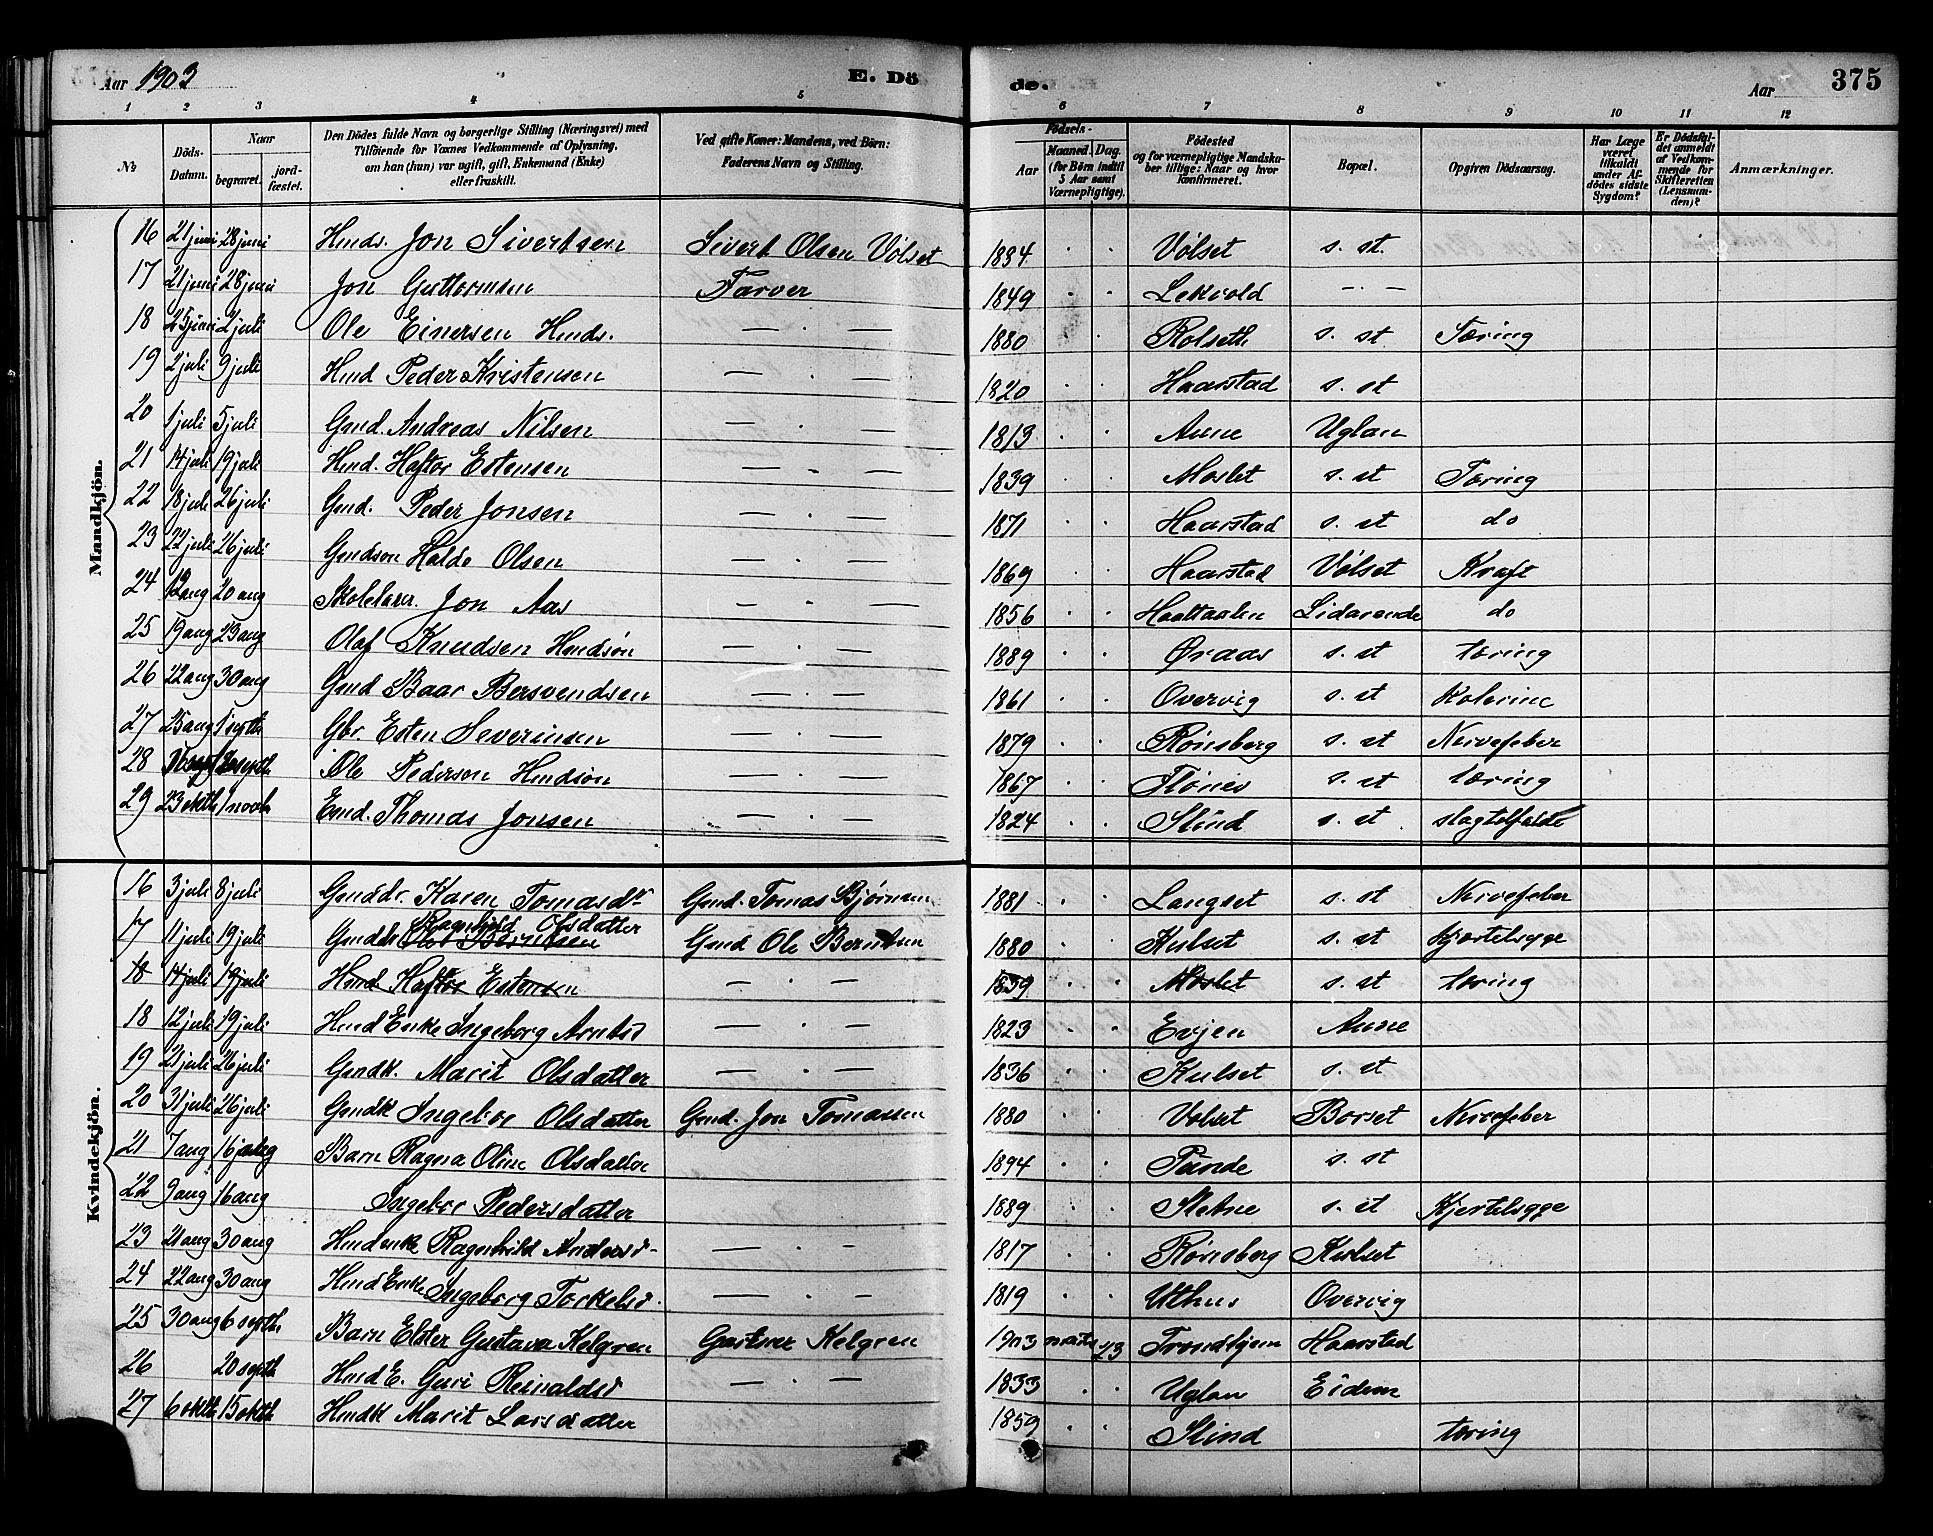 Aar 1903 E. Dö de. Aar 375
1 2 3 4 5 6 7 8 9 10 11 12
№ Döds-Datum. Naar begravet. jordfæstet. Den Dödes fulde Navn og borgerlige Stilling (Næringsvei) med Tilföiende for Voxnes Vedkommende af Oplysning, om han (hun) var ugift, gift, Enkemand (Enke) eller fraskilt. Ved gifte Koner: Mandens, ved Börn: Faderens Navn og Stilling. Födsels- Aar Maaned. Dag. (for Börn indtil 5 Aar samt Værnepligtige). Födested og for værnepligtige Mandskaber tillige: Naar og hvor konfirmeret. Bopæl. Opgiven Dödsaarsag. Har Læge været tilkaldt under Afdödes sidste Sygdom? Er Dödsfaldet anmeldt af Vedkommende for Skifteretten (Lensmanden)? Anmærkninger.
Mandkjön.
16 21 juni 28 juni Hmds. Jon Sivertsen Sivert Olsen Vølset 1834 Vølset s. st.
17 21 juni 28 juni Jon Guttormsen Farver 1849 Lekvold — . —
18 25 juni 2 juli Ole Einersen Hmds. — . — 1880 Rolseth s. st Tæring
19 2 juli 9 juli Hmd Peder Kristensen — . — 1820 Haarstad s. st
20 1 juli 5 juli Gmd. Andreas Nilsen — . — 1813 Aune Uglan
21 14 juli 19 juli Hmd. Haftor Estensen — . — 1839 Moslet s. st Tæring
22 18 juli 26 juli Gmd. Peder Jonsen — . — 1871 Haarstad s. st do
23 22 juli 26 juli Gmdson Haldo Olsen — . — 1869 Haarstad Vølset Kræft
24 12 aug 20 aug Skolelærer. Jon Aas — . — 1856 Haaltaalen Lidarende do
25 19 aug 23 aug Olaf Knudsen Hmdsøn — . — 1889 Øraas s. st tæring
26 22 aug 30 aug Gmd Baar Bersvendsen — . — 1861 Overvig s. st Kolerine
27 25 aug 1 septb Gbr. Esten Severinsen — . — 1879 Rønsberg s. st Nervefeber
28 20 septb Ole Pedersen Hmdsøn — . — 1867 Flønes s. st tæring
29 23 oktb 1 novb Emd. Thomas Jonsen — . — 1824 Slind s. st slagtelfælde
Kvindekjön.
16 3 juli 8 juli Gmddr. Karen Tomasdr Gmd. Tomas Bjørnsen 1881 Langset s. st Nervefeber
17 11 juli 19 juli Gmddr Ragnhild Olsdatter Gmd Ole Berntsen 1880 Kulset s. st kjertelsyge
18 14 juli 19 juli Hmd Haftor Estensen — . — 1839 Moslet s. st tæring
18 12 juli 19 juli Hmd Enke Ingeborg Arntsd — . — 1823 Evjen Aune
19 21 juli 26 juli Gmdk. Marit Olsdatter — . — 1836 Kulset s. st
20 31 juli 26 juli Gmdk Ingebor Olsdatter Gmd. Jon Tomassen 1880 Vølset Borset Nervefeber
21 7 aug 16 aug Barn Ragna Oline Olsdatter 1894 Tunde s. st
22 9 aug 16 aug Ingebor Pedersdatter 1889 Stetne s. st Kjertelsyge
23 21 aug 30 aug Hmdenke Ragnhild Andersd — . — 1817 Rønsberg Kulset
24 22 aug 30 aug Hmd Enke Ingeborg Torkelsd. — . — 1819 Uthus Overvig
25 30 aug 6 septb Barn Ester Gustava Kelgren Gartner Kelgren 1903 mats 23 Trondhjem Haarstad
26 20 septb Hmd E. Guri Reinaldsd — . — 1833 Uglan Eidem
27 6 oktb 15 oktb Hmdk Marit Larsdatter 1859 Slind tæring